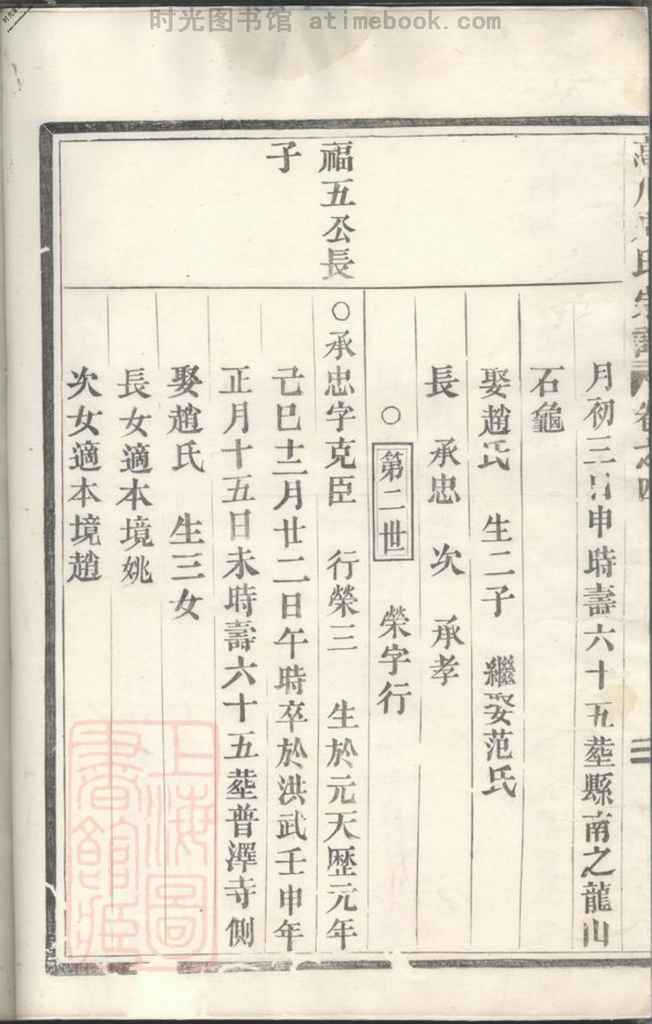 时光图书馆 atimebook.com
氏宗譜 卷之四
三
月初三日申時壽六十五塟縣南之龍山
石龜
娶趙氏 生二子 繼娶范氏
長 承忠 次 承孝
○ 第二世 榮字行
福五公長
子
○承忠字克臣 行榮三 生於元天歷元年
己巳十二月廿二日午時卒於洪武壬申年
正月十五日未時壽六十五塟普澤寺側
娶趙氏 生三女
長女適本境姚
次女適本境趙
上海圖
書館藏